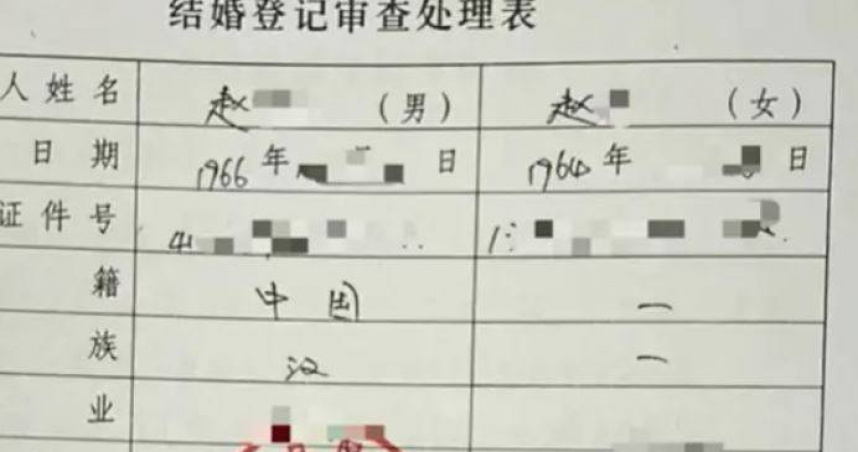 结婚登记审查处理表
人姓名 赵 (男) 赵 (女)
日期 1966年 日 1964年 日
证件号 41
籍 中国 一
族 汉 一
业